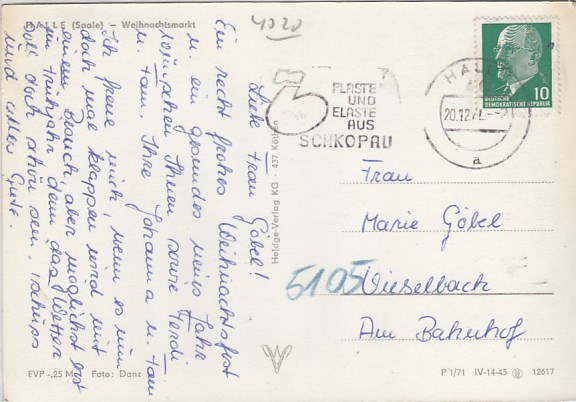 HALLE (Saale) – Weihnachtsmarkt
4020
Liebe Frau Göbel!
Ein recht frohes Weihnachtsfest
u. ein gesundes neues Jahr
wünschen Ihnen sowie Ferdi
u. Fam. Ihre Johanna u. Fam
Ich freue mich, wenn es nun
doch mal klappen wird mit
einem Besuch, aber möglichst erst
im Frühjahr denn das Wetter
soll doch schön sein. Tschüss
und alles Gute.
EVP -,25 M Foto: Danz
Heldge-Verlag KG · 437 Köthen
PLASTE
UND
ELASTE
AUS
SCHKOPAU
HALLE
20.12.71
a
10
DEUTSCHE
DEMOKRATISCHE REPUBLIK
Frau
Marie Göbel
5105 Vieselbach
Am Bahnhof
P 1/71 IV-14-45 12617